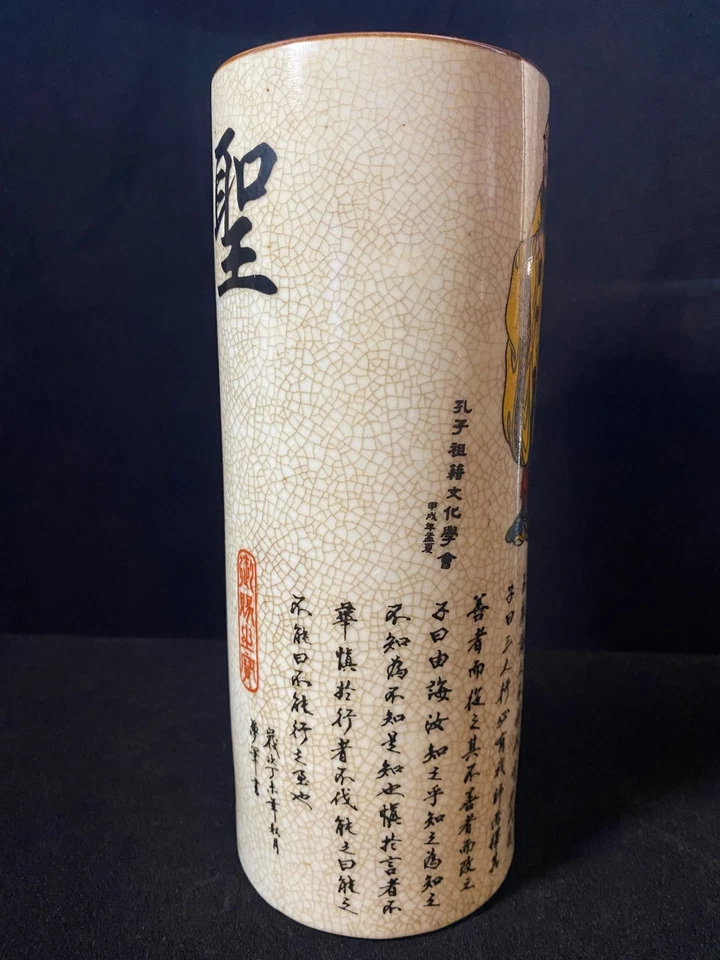 聖
孔子祖籍文化學會
甲戌年孟夏
子曰三人行必有我師焉擇其
善者而從之其不善者而改之
子曰由誨汝知之乎知之為知之
不知為不知是知也慎於言者不
華慎於行者不伐能之曰能之
不能曰不能行之至也
歲次丁未年秋月
御賜之寶